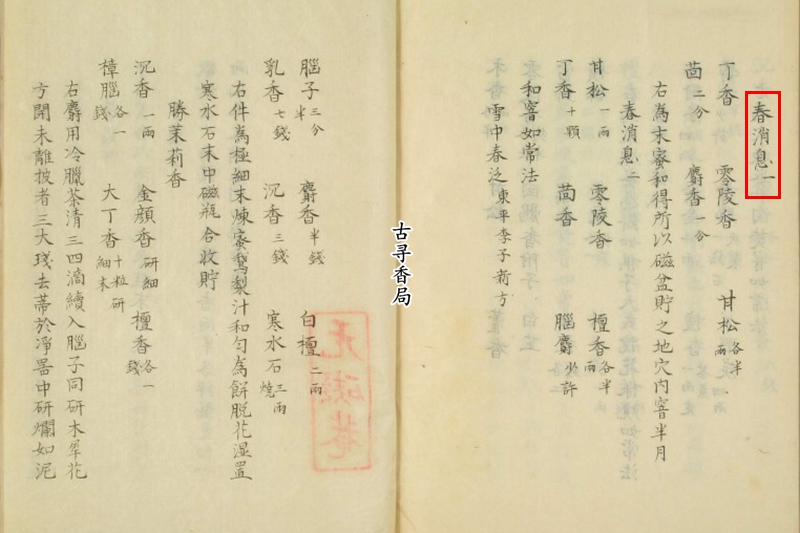 春消息一
丁香 零陵香 甘松各半兩
茴二分 麝香一分
右為末蜜和得所以磁盆貯之地穴內窨半月
春消息二
甘松一兩 零陵香 檀香各半兩
丁香十顆 茴香 腦麝少許
和窨如常法
雪中春泛東平李子新方
古寻香局
腦子三分半 麝香半錢 白檀二兩
乳香七錢 沉香三錢 寒水石三兩燒
右件為極細末煉蜜鵞梨汁和勻為餅脫花濕置
寒水石末中磁瓶合收貯
勝茉莉香
沉香一兩 金顏香研細 檀香各一錢
樟腦各一錢 大丁香十粒研細末
右麝用冷臘茶清三四滴續入腦子同研木犀花
方開未離披者三大琖去蒂於淨器中研爛如泥